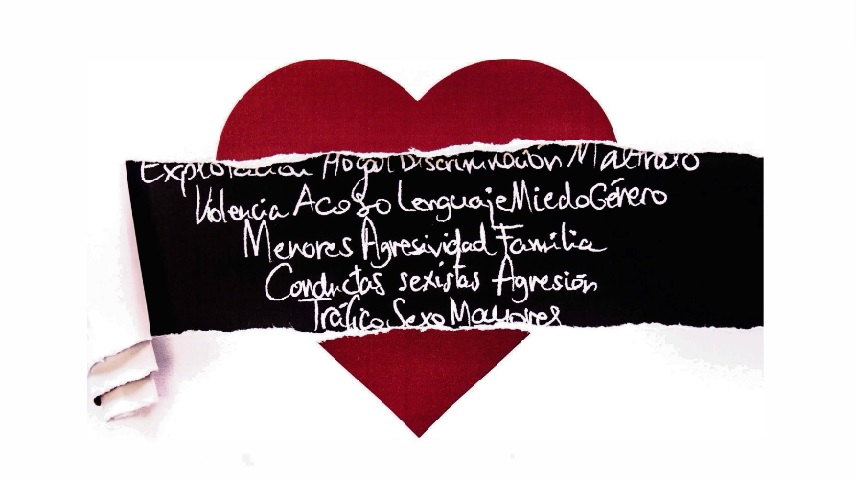 Explotación Hogar Discriminación Maltrato
Violencia Acoso Lenguaje Miedo Género
Menores Agresividad Familia
Conductas sexistas Agresión
Tráfico Sexo Mayores